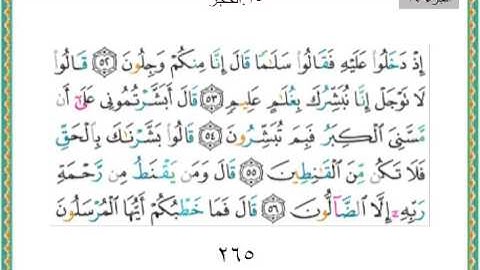 إِذْ دَخَلُوا۟ عَلَيْهِ فَقَالُوا۟ سَلَـٰمًا قَالَ إِنَّا مِنكُمْ وَجِلُونَ ٥٢ قَالُوا۟
لَا تَوْجَلْ إِنَّا نُبَشِّرُكَ بِغُلَـٰمٍ عَلِيمٍ ٥٣ قَالَ أَبَشَّرْتُمُونِى عَلَىٰٓ أَن
مَّسَّنِىَ ٱلْكِبَرُ فَبِمَ تُبَشِّرُونَ ٥٤ قَالُوا۟ بَشَّرْنَـٰكَ بِٱلْحَقِّ
فَلَا تَكُن مِّنَ ٱلْقَـٰنِطِينَ ٥٥ قَالَ وَمَن يَقْنَطُ مِن رَّحْمَةِ
رَبِّهِۦٓ إِلَّا ٱلضَّآلُّونَ ٥٦ قَالَ فَمَا خَطْبُكُمْ أَيُّهَا ٱلْمُرْسَلُونَ
٢٦٥